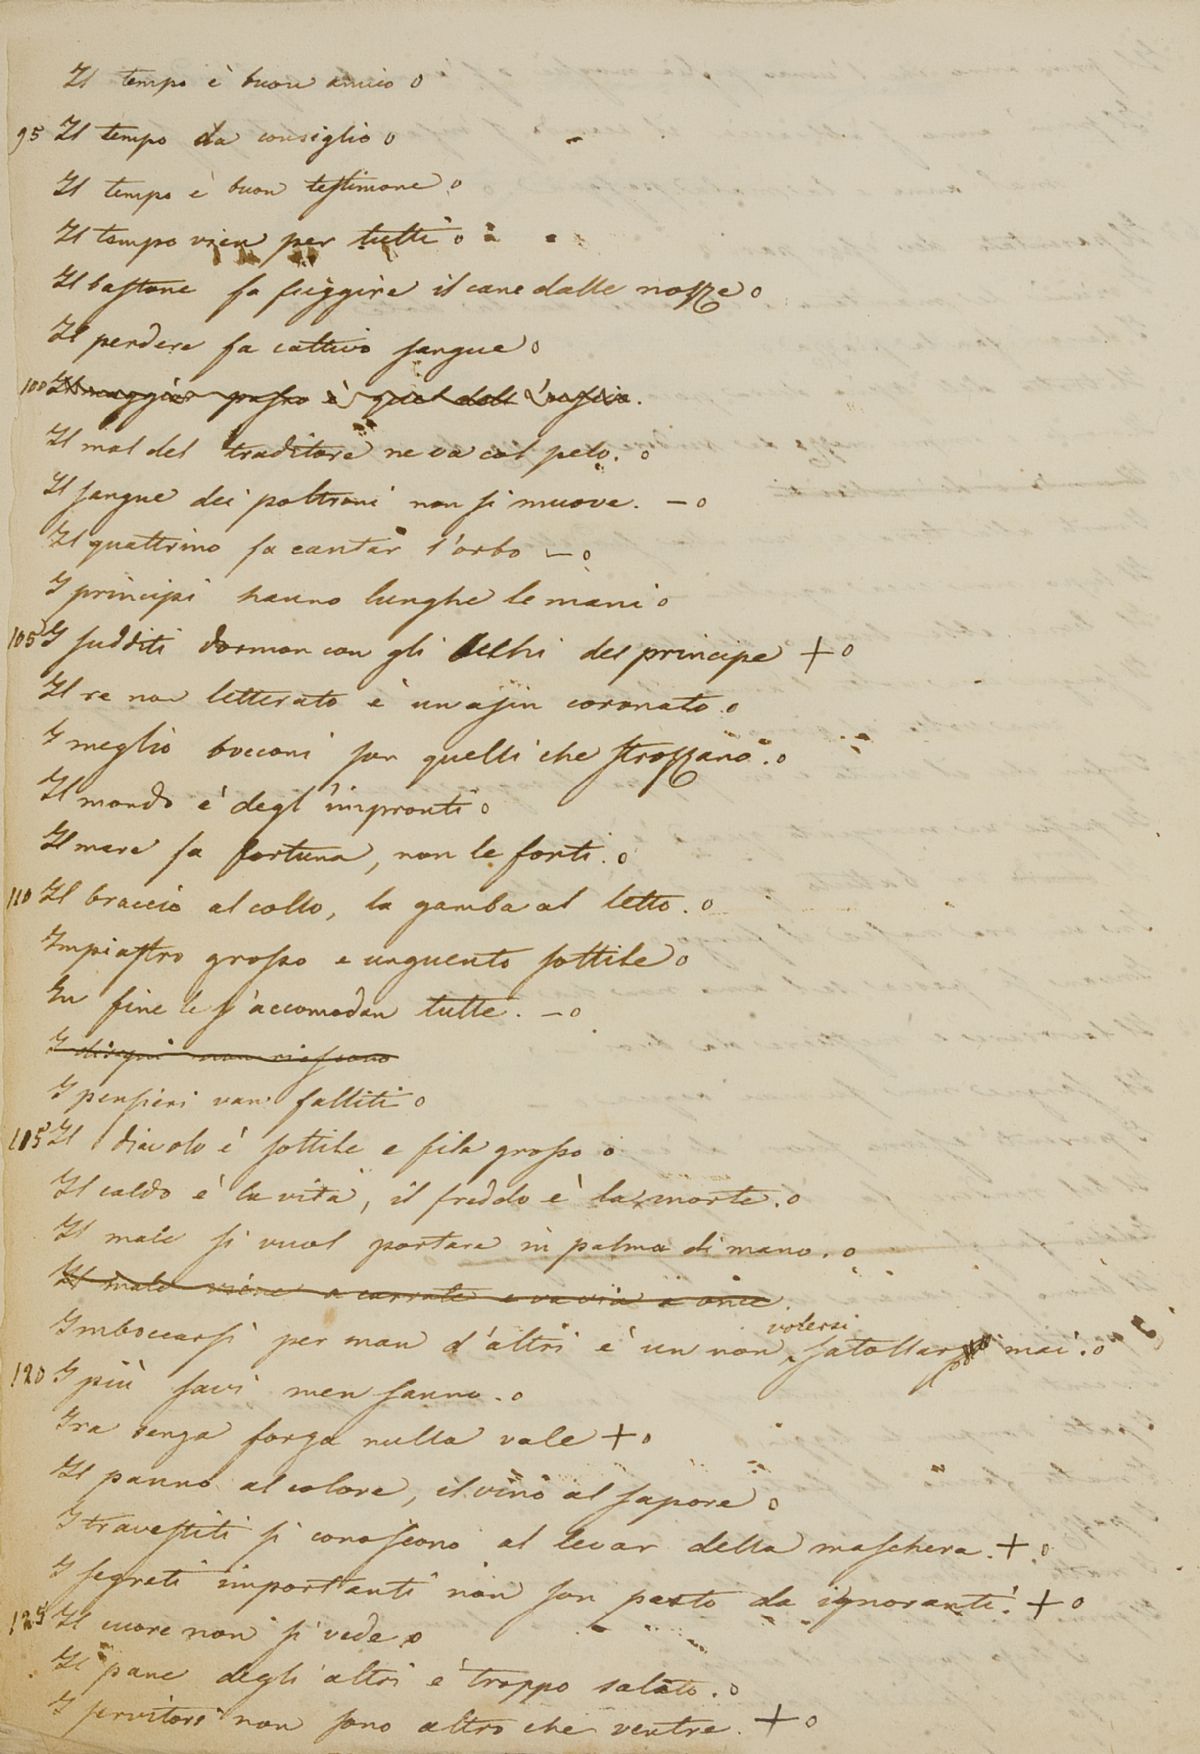 Il tempo è buon amico o
95 Il tempo da consiglio o
Il tempo è buon testimone o
Il tempo vien per tutti o
Il bastone fa fuggire il cane dalle nozze o
Il perdere fa cattivo sangue o
100 Il maggior passo è quel dell'uscio.
Il mal del traditore ne va col pelo. o
Il sangue dei poltroni non si muove. – o
Il quattrino fa cantar l'orbo – o
I principi hanno lunghe le mani o
105 I sudditi dorman con gli occhi del principe + o
Il re non letterato è un asin coronato. o
I meglio bocconi son quelli che strozzano. o
Il mondo è degl'impronti o
Il mare fa fortuna, non le fonti. o
110 Il braccio al collo, la gamba al letto. o
Impiastro grosso e unguento sottile o
In fine le s'accomodan tutte. – o
I disegni non riescono
I pensieri van falliti o
115 Il diavolo è sottile e fila grosso o
Il caldo è la vita, il freddo è la morte. o
Il male si vuol portare in palma di mano. o
Il male viene a carrate e va via a once.
volersi
Imboccarsi per man d'altri è un non satollar mai. o
120 I più savi men sanno. o
Ira senza forza nulla vale + o
Il panno al colore, il vino al sapore o
I travestiti si conoscono al levar della maschera. + o
I segreti importanti non son pasto da ignoranti. + o
125 Il cuore non si vede o
Il pane degli altri è troppo salato. o
I servitori non sono altro che ventre. + o